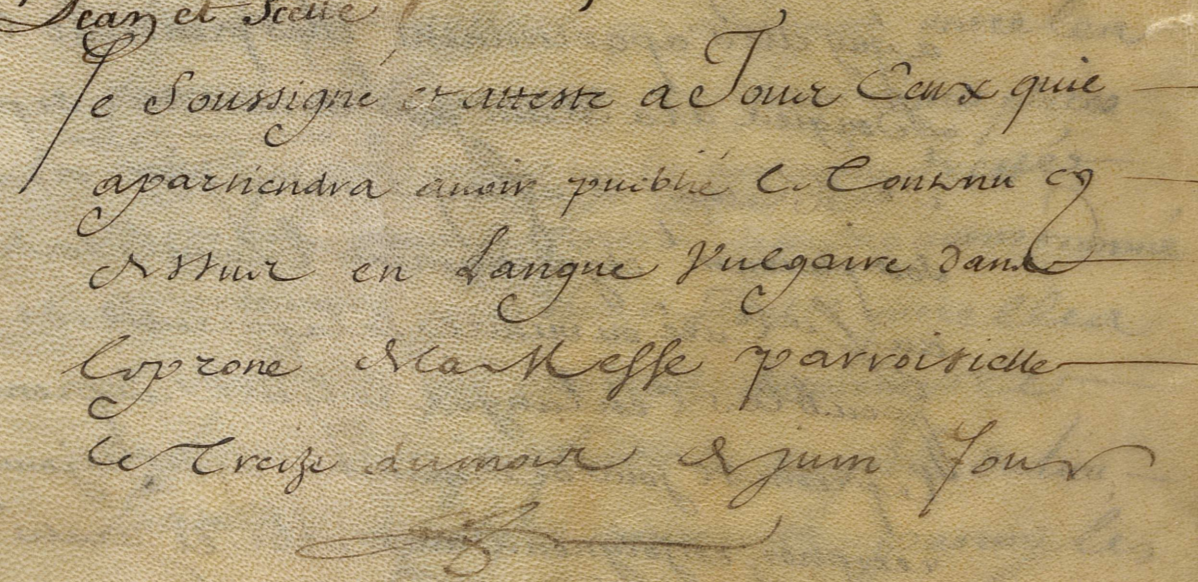 Jean et Scelle
Je Soussigné et atteste a Tous Ceux quie
apartiendra avoir publié le Contenu cy
dessus en Langue Vulgaire dans
le prone de la Messe parroissielle
le Treize du mois de juin Jour